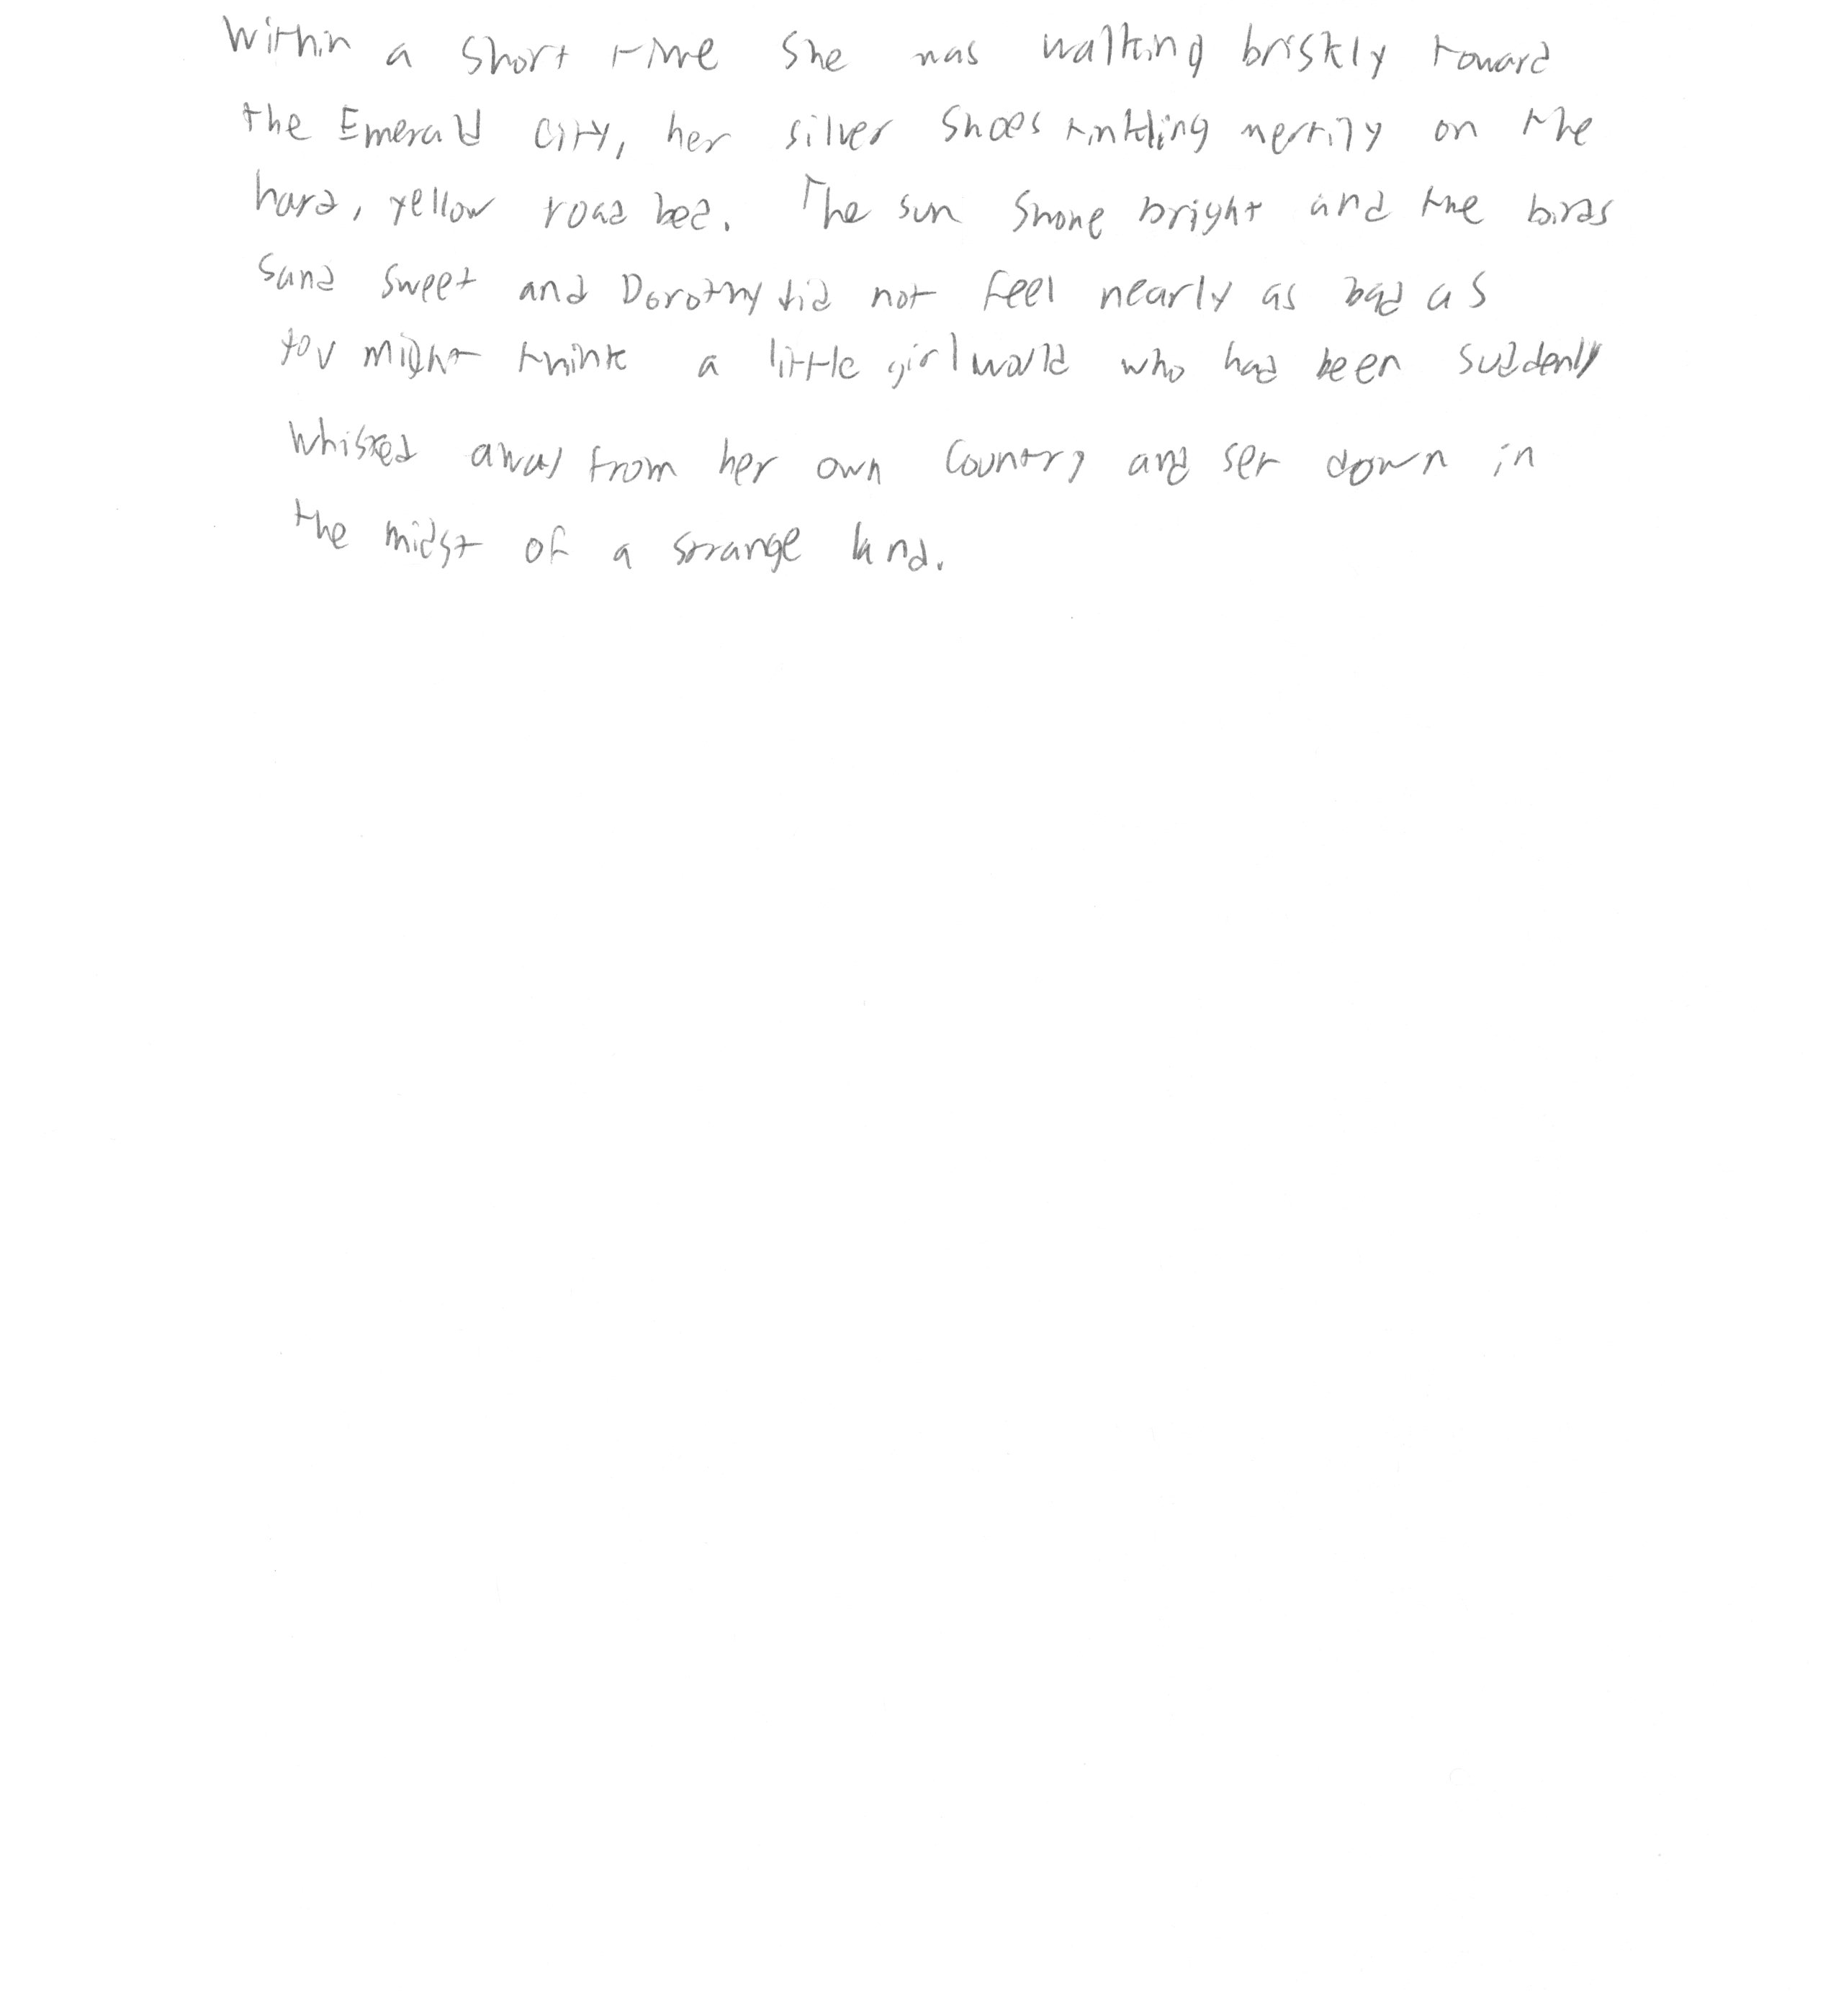 Within a short time she was walking briskly toward
the Emerald City, her silver shoes tinkling merrily on the
hard, yellow road bed. The sun shone bright and the birds
sand sweet and Dorothy did not feel nearly as bad as
you might think a little girl would who had been suddenly
whisked away from her own country and set down in
the midst of a strange land.